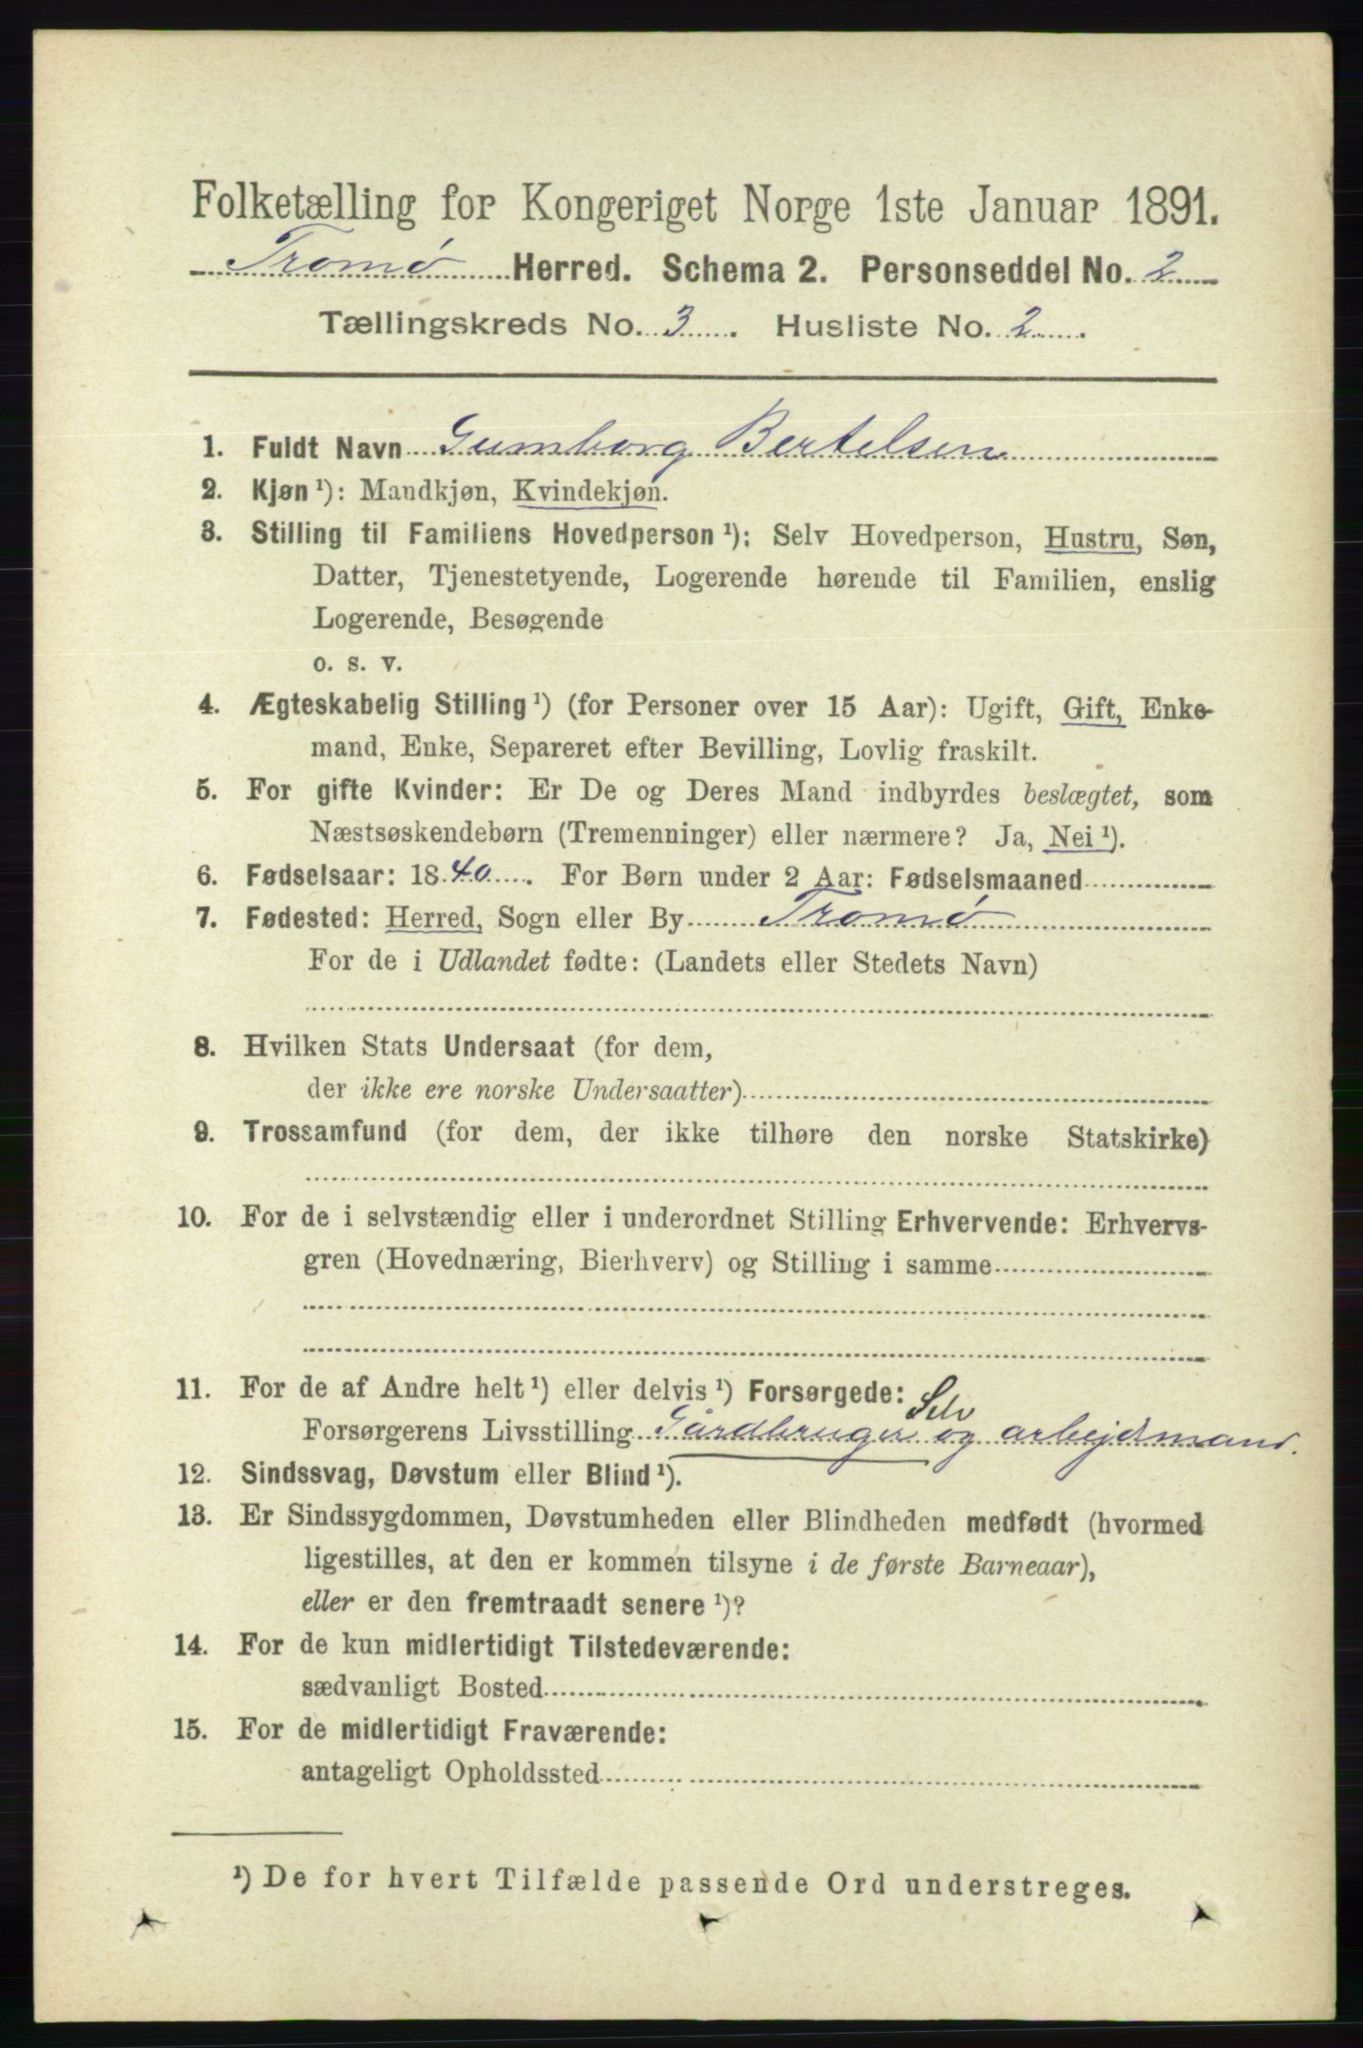 Folketælling for Kongeriget Norge 1ste Januar 1891.
Tromø Herred. Schema 2. Personseddel No. 2
Tællingskreds No. 3. Husliste No. 2.
1. Fuldt Navn Gumborg Bertelsen
2. Kjøn ¹): Mandkjøn, Kvindekjøn.
3. Stilling til Familiens Hovedperson ¹): Selv Hovedperson, Hustru, Søn,
Datter, Tjenestetyende, Logerende hørende til Familien, enslig
Logerende, Besøgende
o. s. v.
4. Ægteskabelig Stilling ¹) (for Personer over 15 Aar): Ugift, Gift, Enke-
mand, Enke, Separeret efter Bevilling, Lovlig fraskilt.
5. For gifte Kvinder: Er De og Deres Mand indbyrdes beslægtet, som
Næstsøskendebørn (Tremenninger) eller nærmere? Ja, Nei ¹).
6. Fødselsaar: 1840. For Børn under 2 Aar: Fødselsmaaned
7. Fødested: Herred, Sogn eller By Tromø
For de i Udlandet fødte: (Landets eller Stedets Navn)
8. Hvilken Stats Undersaat (for dem,
der ikke ere norske Undersaatter)
9. Trossamfund (for dem, der ikke tilhøre den norske Statskirke)
10. For de i selvstændig eller i underordnet Stilling Erhvervende: Erhvervs-
gren (Hovednæring, Bierhverv) og Stilling i samme
11. For de af Andre helt ¹) eller delvis ¹) Forsørgede:
Selv
Forsørgerens Livsstilling Gårdbruger og arbejdmand.
12. Sindssvag, Døvstum eller Blind ¹).
13. Er Sindssygdommen, Døvstumheden eller Blindheden medfødt (hvormed
ligestilles, at den er kommen tilsyne i de første Barneaar),
eller er den fremtraadt senere ¹)?
14. For de kun midlertidigt Tilstedeværende:
sædvanligt Bosted
15. For de midlertidigt Fraværende:
antageligt Opholdssted
¹) De for hvert Tilfælde passende Ord understreges.